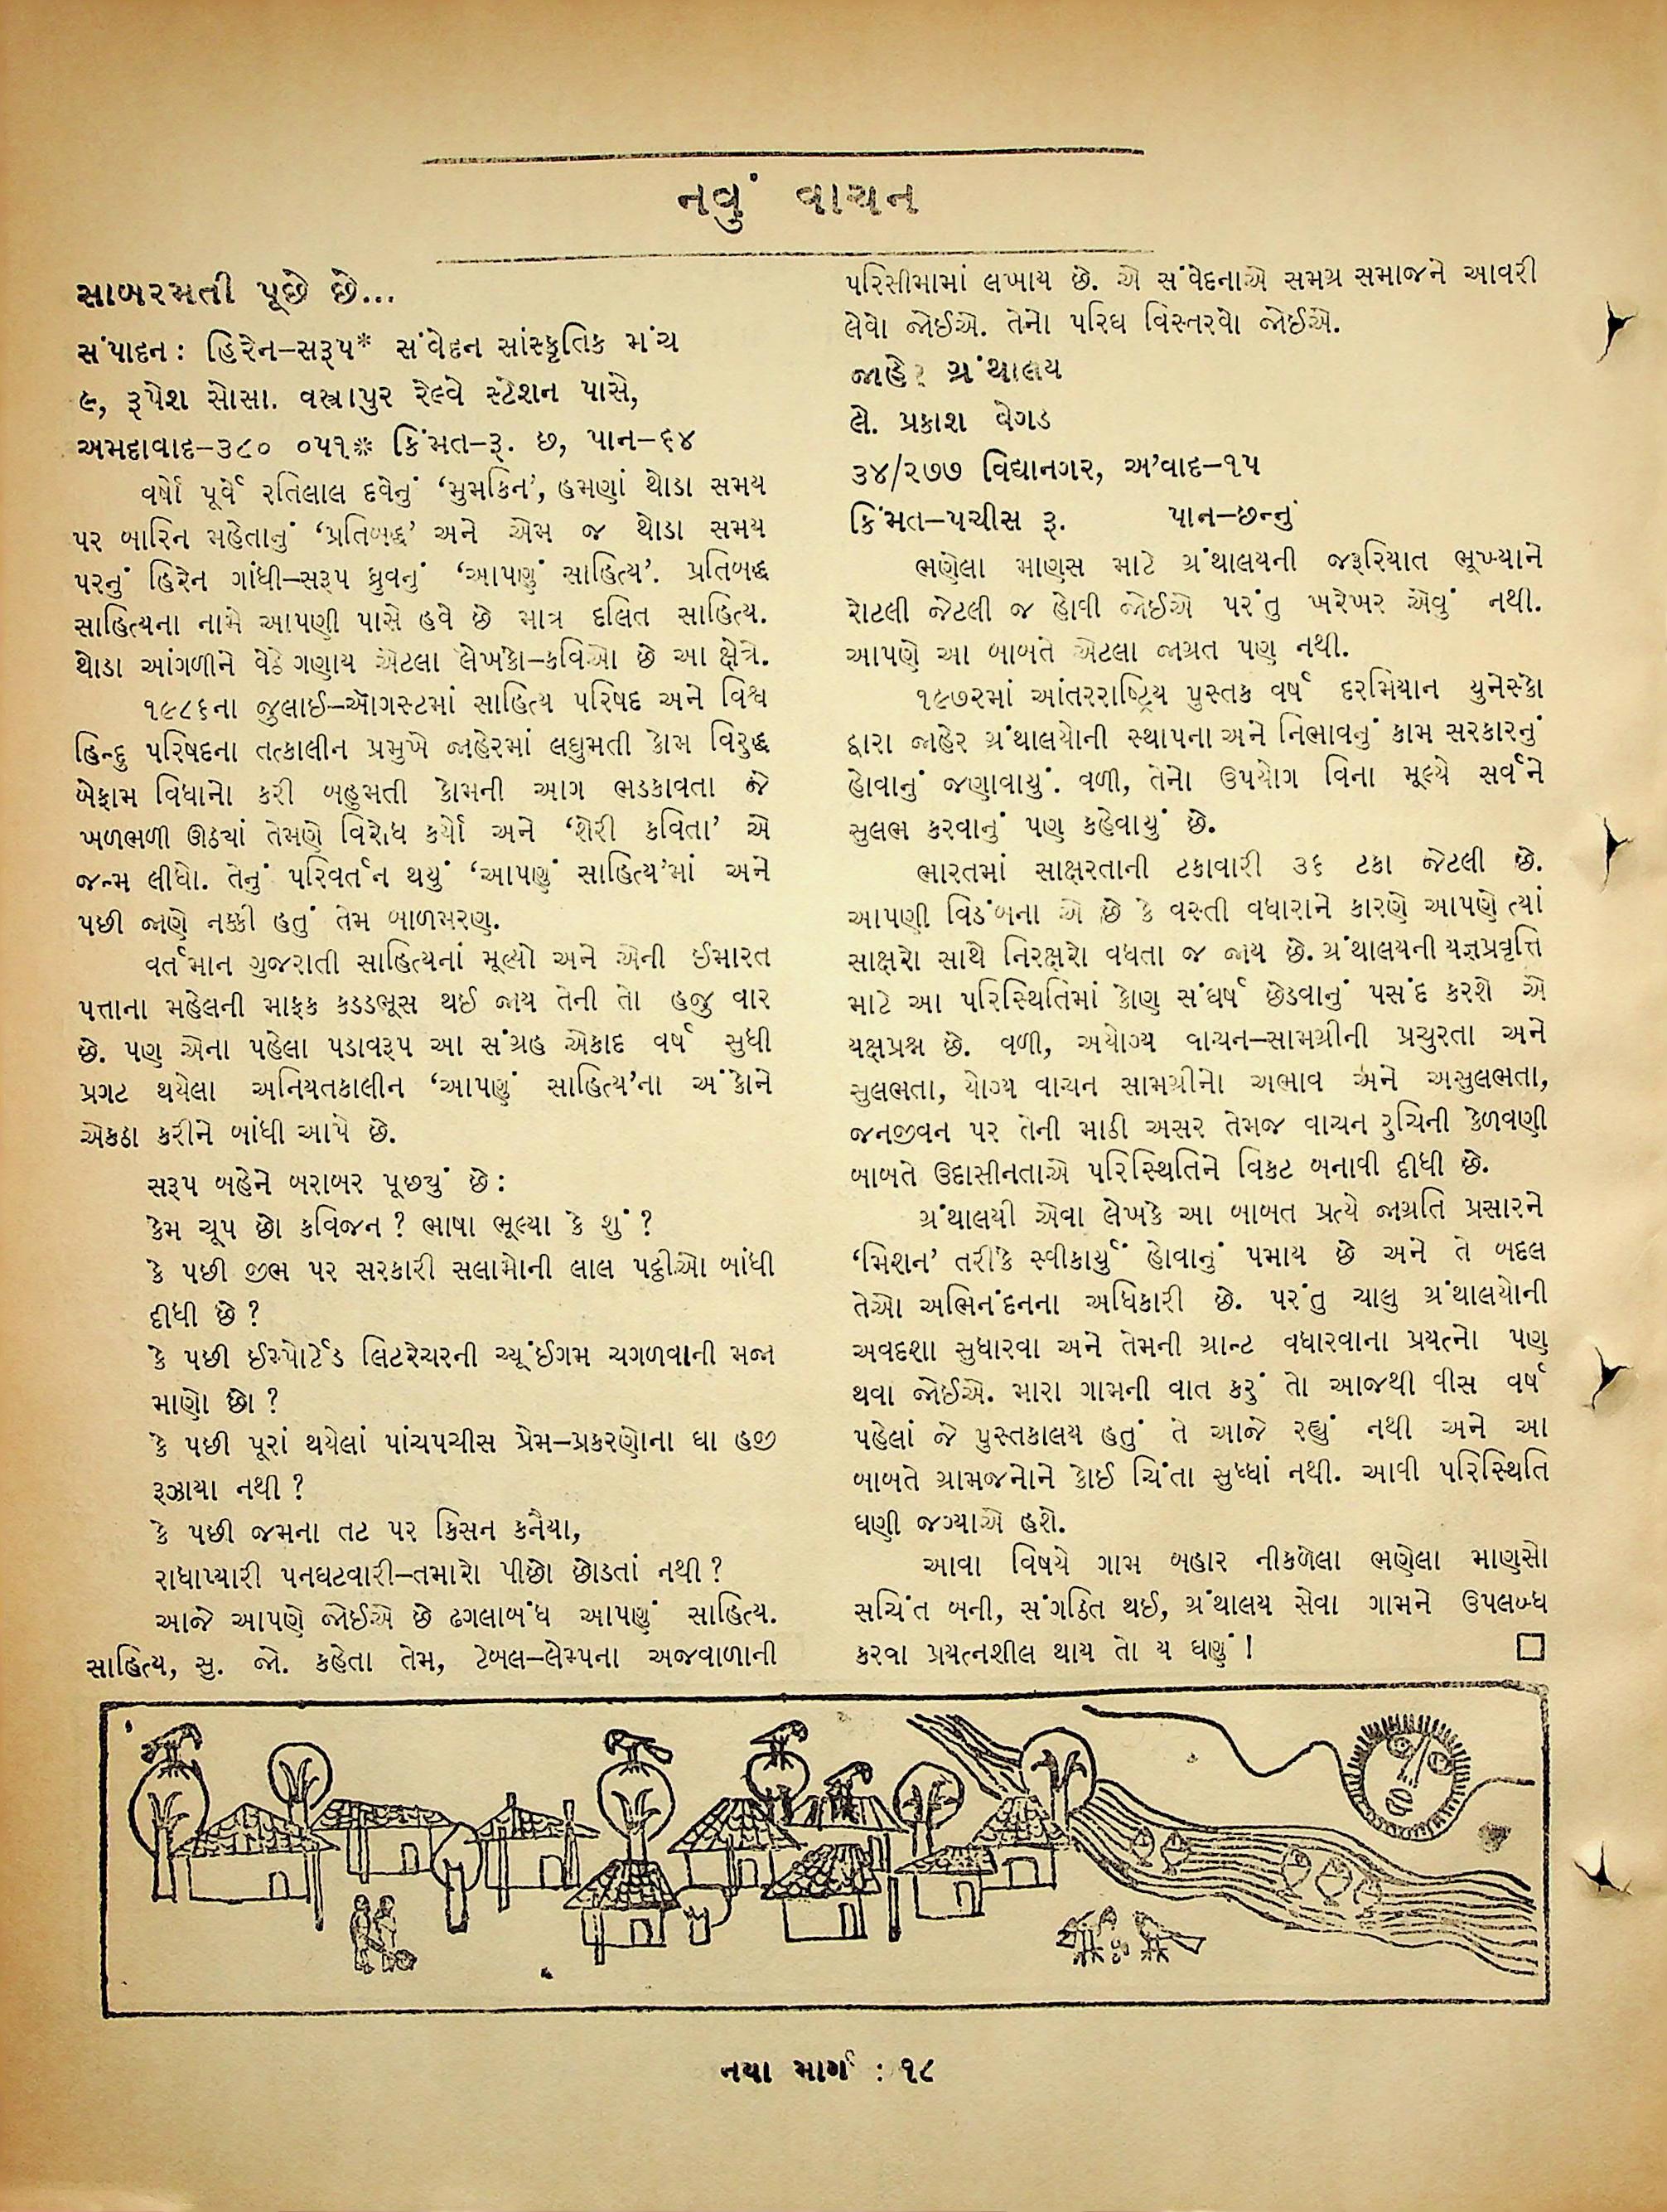 નવું વાચન
સાબરમતી પૂછે છે...
સંપાદન : હિરેન–સરૂપ* સંવેદન સાંસ્કૃતિક મંચ
૯, રૂપેશ સોસા. વસ્ત્રાપુર રેલ્વે સ્ટેશન પાસે,
અમદાવાદ–૩૮૦ ૦૫૧* કિંમત–રૂ. છ, પાન–૬૪
વર્ષો પૂર્વે રતિલાલ દવેનું ‘મુમકિન’, હમણાં થોડા સમય
પર બારિન મહેતાનું ‘પ્રતિબદ્ધ’ અને એમ જ થોડા સમય
પરનું હિરેન ગાંધી–સરૂપ ધ્રુવનું ‘આપણું સાહિત્ય’. પ્રતિબદ્ધ
સાહિત્યના નામે આપણી પાસે હવે છે માત્ર દલિત સાહિત્ય.
થોડા આંગળીને વેઢે ગણાય એટલા લેખકો–કવિઓ છે આ ક્ષેત્રે.
૧૯૮૬ના જુલાઈ–ઑગસ્ટમાં સાહિત્ય પરિષદ અને વિશ્વ
હિન્દુ પરિષદના તત્કાલીન પ્રમુખે જાહેરમાં લઘુમતી કોમ વિરુદ્ધ
બેફામ વિધાનો કરી બહુમતી કોમની આગ ભડકાવતા જે
ખળભળી ઊઠ્યાં તેમણે વિરોધ કર્યો અને ‘શેરી કવિતા’ એ
જન્મ લીધો. તેનું પરિવર્તન થયું ‘આપણું સાહિત્ય’માં અને
પછી જાણે નક્કી હતું તેમ બાળમરણ.
વર્તમાન ગુજરાતી સાહિત્યનાં મૂલ્યો અને એની ઈમારત
પત્તાના મહેલની માફક કડડભૂસ થઈ જાય તેની તો હજુ વાર
છે. પણ એના પહેલા પડાવરૂપ આ સંગ્રહ એકાદ વર્ષ સુધી
પ્રગટ થયેલા અનિયતકાલીન ‘આપણું સાહિત્ય’ના અંકોને
એકઠા કરીને બાંધી આપે છે.
સરૂપ બહેને બરાબર પૂછ્યું છે :
કેમ ચૂપ છો કવિજન ? ભાષા ભૂલ્યા કે શું ?
કે પછી જીભ પર સરકારી સલામોની લાલ પટ્ટીઓ બાંધી
દીધી છે ?
કે પછી ઈમ્પોર્ટેડ લિટરેચરની ચ્યૂંઈગમ ચગળવાની મજા
માણો છો ?
કે પછી પૂરાં થયેલાં પાંચપચીસ પ્રેમ–પ્રકરણોના ઘા હજી
રૂઝાયા નથી ?
કે પછી જમના તટ પર કિસન કનૈયા,
રાધાપ્યારી પનઘટવારી–તમારો પીછો છોડતાં નથી ?
આજે આપણે જોઈએ છે ઢગલાબંધ આપણું સાહિત્ય.
સાહિત્ય, સુ. જો. કહેતા તેમ, ટેબલ–લેમ્પના અજવાળાની
પરિસીમામાં લખાય છે. એ સંવેદનાએ સમગ્ર સમાજને આવરી
લેવો જોઈએ. તેનો પરિઘ વિસ્તરવો જોઈએ.
જાહેર ગ્રંથાલય
લે. પ્રકાશ વેગડ
૩૪/૨૭૭ વિદ્યાનગર, અ’વાદ–૧૫
કિંમત–પચીસ રૂ. પાન–છન્નું
ભણેલા માણસ માટે ગ્રંથાલયની જરૂરિયાત ભૂખ્યાને
રોટલી જેટલી જ હોવી જોઈએ પરંતુ ખરેખર એવું નથી.
આપણે આ બાબતે એટલા જાગ્રત પણ નથી.
૧૯૭૨માં આંતરરાષ્ટ્રિય પુસ્તક વર્ષ દરમિયાન યુનેસ્કો
દ્વારા જાહેર ગ્રંથાલયોની સ્થાપના અને નિભાવનું કામ સરકારનું
હોવાનું જણાવાયું. વળી, તેનો ઉપયોગ વિના મૂલ્યે સર્વને
સુલભ કરવાનું પણ કહેવાયું છે.
ભારતમાં સાક્ષરતાની ટકાવારી ૩૬ ટકા જેટલી છે.
આપણી વિડંબના એ છે કે વસ્તી વધારાને કારણે આપણે ત્યાં
સાક્ષરો સાથે નિરક્ષરો વધતા જ જાય છે. ગ્રંથાલયની યજ્ઞપ્રવૃત્તિ
માટે આ પરિસ્થિતિમાં કોણ સંઘર્ષ છેડવાનું પસંદ કરશે એ
યક્ષપ્રશ્ન છે. વળી, અયોગ્ય વાચન–સામગ્રીની પ્રચુરતા અને
સુલભતા, યોગ્ય વાચન સામગ્રીનો અભાવ અને અસુલભતા,
જનજીવન પર તેની માઠી અસર તેમજ વાચન રુચિની કેળવણી
બાબતે ઉદાસીનતાએ પરિસ્થિતિને વિકટ બનાવી દીધી છે.
ગ્રંથાલયી એવા લેખકે આ બાબત પ્રત્યે જાગ્રતિ પ્રસારને
‘મિશન’ તરીકે સ્વીકાર્યું હોવાનું પમાય છે અને તે બદલ
તેઓ અભિનંદનના અધિકારી છે. પરંતુ ચાલુ ગ્રંથાલયોની
અવદશા સુધારવા અને તેમની ગ્રાન્ટ વધારવાના પ્રયત્નો પણ
થવા જોઈએ. મારા ગામની વાત કરું તો આજથી વીસ વર્ષ
પહેલાં જે પુસ્તકાલય હતું તે આજે રહ્યું નથી અને આ
બાબતે ગ્રામજનોને કોઈ ચિંતા સુધ્ધાં નથી. આવી પરિસ્થિતિ
ઘણી જગ્યાએ હશે.
આવા વિષયે ગામ બહાર નીકળેલા ભણેલા માણસો
સચિંત બની, સંગઠિત થઈ, ગ્રંથાલય સેવા ગામને ઉપલબ્ધ
કરવા પ્રયત્નશીલ થાય તો ય ઘણું !
નયા માર્ગ : ૧૮